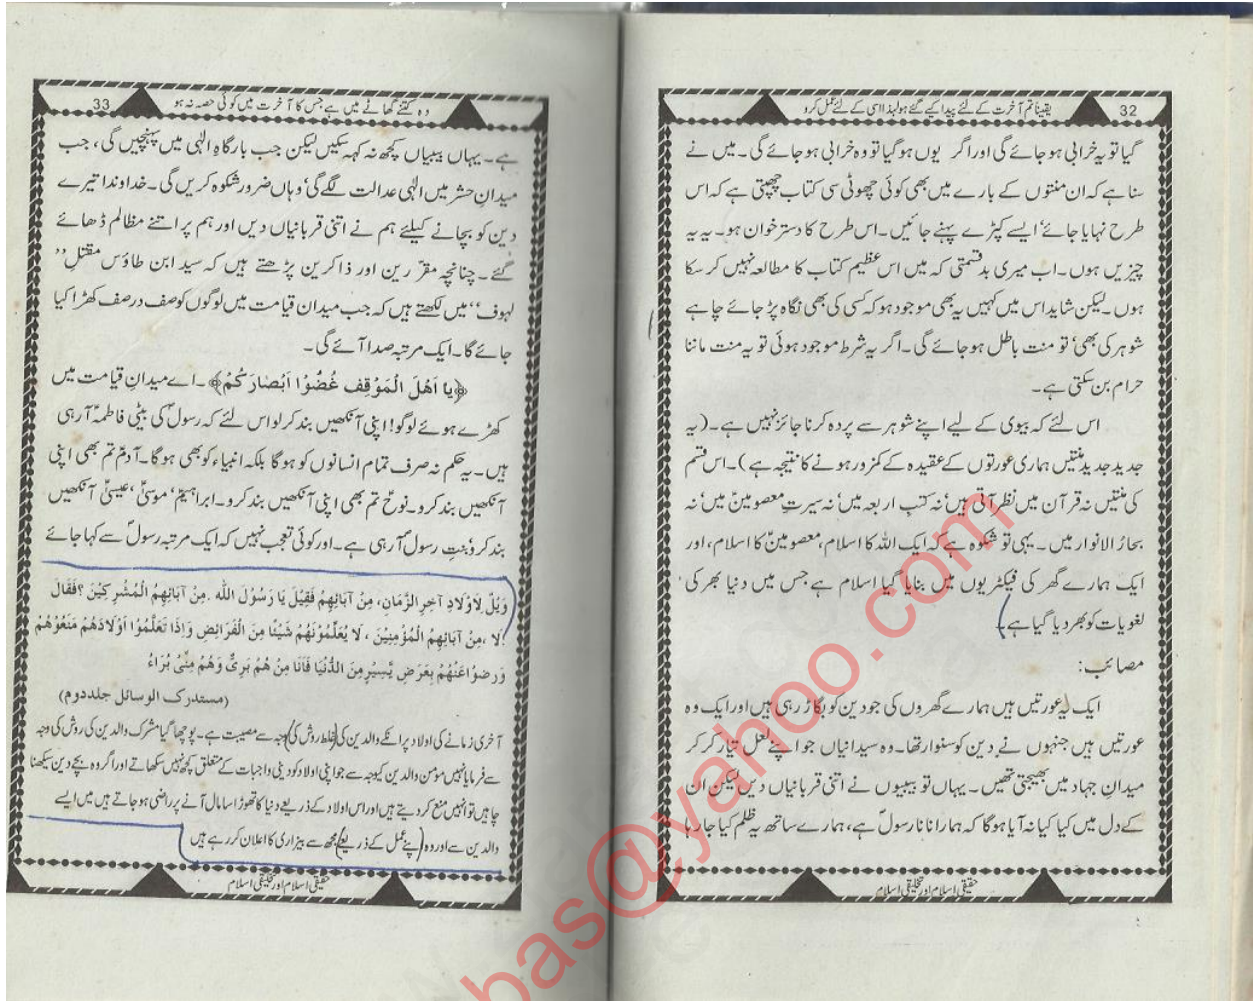 32
یقیناً تم آخرت کے لئے پیدا کیے گئے ہو لہٰذا اسی کے لئے عمل کرو
گیا تو یہ خرابی ہو جائے گی اور اگر یوں ہو گیا تو وہ خرابی ہو جائے گی۔ میں نے
سنا ہے کہ ان منتوں کے بارے میں بھی کوئی چھوٹی سی کتاب چھپتی ہے کہ اس
طرح نہایا جائے‘ ایسے کپڑے پہنے جائیں۔ اس طرح کا دسترخوان ہو۔ یہ یہ
چیزیں ہوں۔ اب میری بدقسمتی کہ میں اس عظیم کتاب کا مطالعہ نہیں کر سکا
ہوں۔ لیکن شاید اس میں کہیں یہ بھی موجود ہو کہ کسی کی بھی نگاہ پڑ جائے چاہے
شوہر کی بھی‘ تو منت باطل ہو جائے گی۔ اگر یہ شرط موجود ہوئی تو یہ منت ماننا
حرام بن سکتی ہے۔
اس لئے کہ بیوی کے لیے اپنے شوہر سے پردہ کرنا جائز نہیں ہے۔ (یہ
جدید جدید منتیں ہماری عورتوں کے عقیدہ کے کمزور ہونے کا نتیجہ ہے)۔ اس قسم
کی منتیں نہ قرآن میں نظر آتی ہیں‘ نہ کتب اربعہ میں‘ نہ سیرتِ معصومینؑ میں‘ نہ
بحارُ الانوار میں۔ یہی تو شکوہ ہے کہ ایک اللہ کا اسلام، معصومینؑ کا اسلام، اور
ایک ہمارے گھر کی فیکٹریوں میں بنایا گیا اسلام ہے جس میں دنیا بھر کی
لغویات کو بھر دیا گیا ہے۔
مصائب:
ایک یہ عورتیں ہیں ہمارے گھروں کی جو دین کو بگاڑ رہی ہیں اور ایک وہ
عورتیں ہیں جنہوں نے دین کو سنوارا تھا۔ وہ سیدانیاں جو اپنے لعل تیار کر کر
میدانِ جہاد میں بھیجتی تھیں۔ یہاں تو بیبیوں نے اتنی قربانیاں دیں لیکن ان
کے دل میں کیا کیا نہ آیا ہوگا کہ ہمارا نانا رسولؐ ہے، ہمارے ساتھ یہ ظلم کیا جا رہا
حقیقی اسلام اور تخلیقی اسلام
33
وہ کتنے گھاٹے میں ہے جس کا آخرت میں کوئی حصہ نہ ہو
ہے۔ یہاں بیبیاں کچھ نہ کہہ سکیں لیکن جب بارگاہِ الٰہی میں پہنچیں گی، جب
میدانِ حشر میں الٰہی عدالت لگے گی‘ وہاں ضرور شکوہ کریں گی۔ خداوندا تیرے
دین کو بچانے کیلئے ہم نے اتنی قربانیاں دیں اور ہم پر اتنے مظالم ڈھائے
گئے۔ چنانچہ مقرّرین اور ذاکرین پڑھتے ہیں کہ سید ابن طاؤس ’’مقتلِ
لہوف‘‘ میں لکھتے ہیں کہ جب میدانِ قیامت میں لوگوں کو صف در صف کھڑا کیا
جائے گا۔ ایک مرتبہ صدا آئے گی۔
﴿یا اَهْلَ الْمَوْقِفِ غُضُّوْا اَبْصَارَكُمْ﴾۔ اے میدانِ قیامت میں
کھڑے ہوئے لوگو! اپنی آنکھیں بند کر لو اس لئے کہ رسولؐ کی بیٹی فاطمہؑ آ رہی
ہیں۔ یہ حکم نہ صرف تمام انسانوں کو ہوگا بلکہ انبیاء کو بھی ہوگا۔ آدمؑ تم بھی اپنی
آنکھیں بند کرو۔ نوحؑ تم بھی اپنی آنکھیں بند کرو۔ ابراہیمؑ‘ موسیٰؑ‘ عیسیٰؑ آنکھیں
بند کرو‘ بنتِ رسولؐ آ رہی ہے۔ اور کوئی تعجب نہیں کہ ایک مرتبہ رسولؐ سے کہا جائے
وَيْلٌ لِاَوْلَادِ آخِرِ الزَّمَانِ، مِنْ آبَائِهِمْ فَقِيْلَ يَا رَسُوْلَ اللّٰه. مِنْ آبَائِهِمُ الْمُشْرِكِيْنَ؟ فَقَالَ
لَا، مِنْ آبَائِهِمُ الْمُؤْمِنِيْنَ، لَا يُعَلِّمُوْنَهُمْ شَيْئًا مِنَ الْفَرَائِضِ وَاِذَا تَعَلَّمُوْا اَوْلَادُهُمْ مَنَعُوْهُمْ
وَرَضُوْا عَنْهُمْ بِعَرَضٍ يَّسِيْرٍ مِنَ الدُّنْيَا فَاَنَا مِنْ هُمْ بَرِيٌّ وَهُمْ مِنِّيْ بُرَاءُ
(مستدرک الوسائل جلد دوم)
آخری زمانے کی اولاد پر انکے والدین کی (غلط روش کی) وجہ سے مصیبت ہے۔ پوچھا گیا مشرک والدین کی روش کی وجہ
سے فرمایا نہیں مؤمن والدین کیوجہ سے جو اپنی اولاد کو دینی واجبات کے متعلق کچھ نہیں سکھاتے اور اگر وہ بچے دین سیکھنا
چاہیں تو انہیں منع کر دیتے ہیں اور اس اولاد کے ذریعے دنیا کا تھوڑا سا مال آنے پر راضی ہو جاتے ہیں میں ایسے
والدین سے اور وہ (اپنے عمل کے ذریعے) مجھ سے بیزاری کا اعلان کر رہے ہیں
حقیقی اسلام اور تخلیقی اسلام
bas@yahoo.com